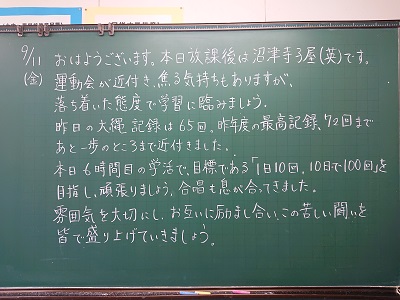 9/11 おはようございます。本日放課後は沼津寺子屋(英)です。
(金) 運動会が近付き、焦る気持ちもありますが、
落ち着いた態度で学習に臨みましょう。
昨日の大縄記録は65回、昨年度の最高記録、72回まで
あと一歩のところまで近付きました。
本日6時間目の学活で、目標である「1日10回、10日で100回」を
目指し、頑張りましょう。合唱も息が合ってきました。
雰囲気を大切にし、お互いに励まし合い、この苦しい闘いを
皆で盛り上げていきましょう。